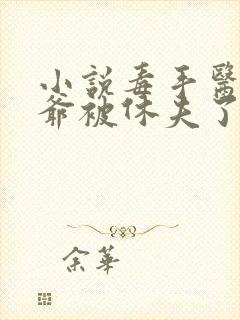 小說毒手醫
爺被休夫了
余華